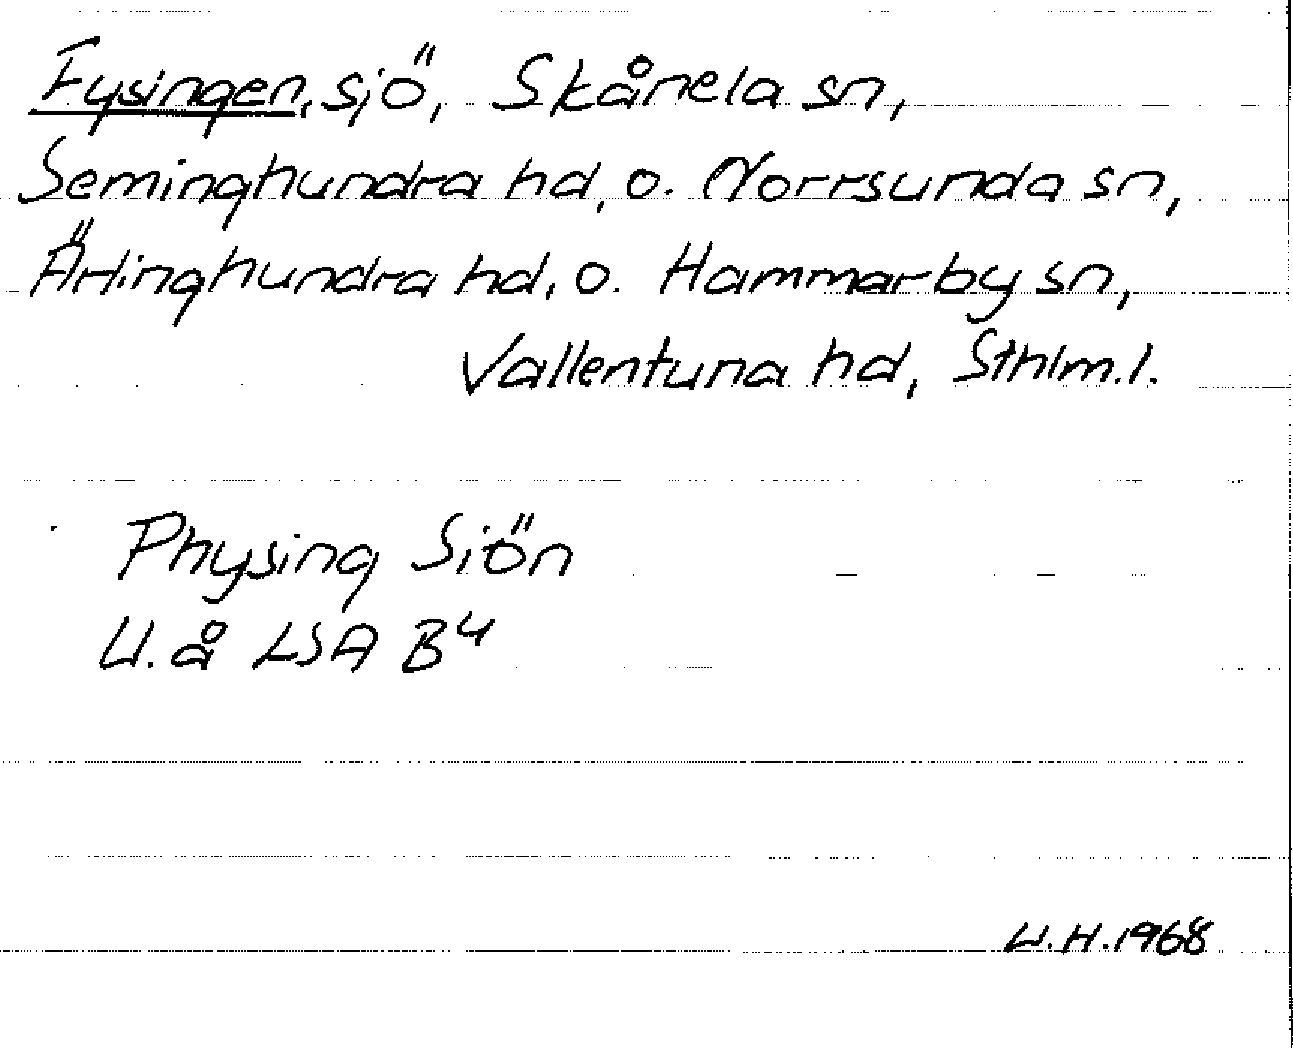 Fysingen, sjö, Skånela sn,
Seminghundra hd, o. Norrsunda sn,
Ärlinghundra hd, o. Hammarby sn,
Vallentuna hd, Sthlm.l.
Physing Siön
U.å LSA B4
U.H.1968